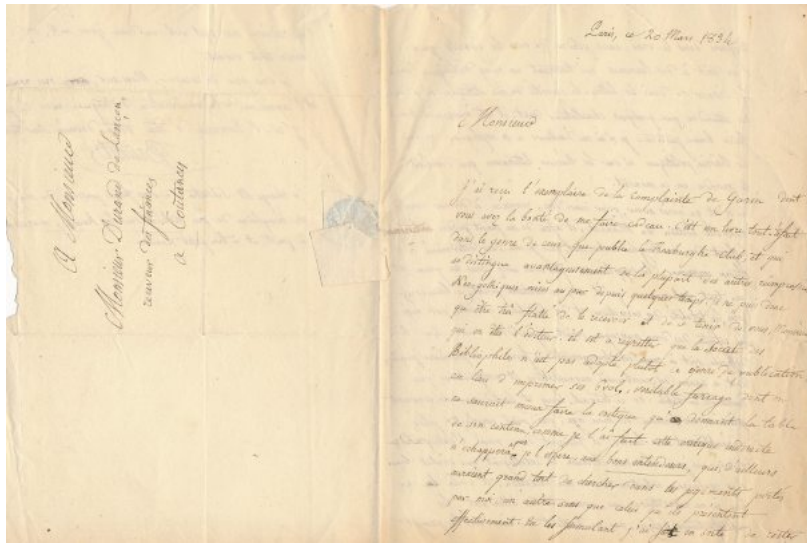 A Monsieur
Monsieur Durand de Lançon,
receveur des finances
à Coutances
Paris, ce 20 Mars 1834
Monsieur
J'ai reçu l'exemplaire de la Complainte de Garin dont
vous avez la bonté de me faire cadeau. C'est un livre tout à fait
dans le genre de ceux que publie le Roxburghe club, et qui
se distingue avantageusement de la plupart des autres
mises au jour depuis quelque temps. Je ne puis donc
qu'être très flatté de le recevoir, et de le tenir de vous, Monsieur
qui en êtes l'éditeur. Il est à regretter que la Société des
Bibliophiles n'ait pas adopté plutôt ce genre de publication
au lieu d'imprimer ses vol. véritable farrago dont on
ne sauroit mieux faire la critique qu'en donnant la table
de son contenu, comme je l'ai fait. cette critique indirecte
n'échappera pas, je l'espère, aux bons entendeurs, qui d'ailleurs
auraient grand tort de chercher dans les jugements portés
par moi un autre sens que celui qu'ils présentent
effectivement. En les formulant j'ai